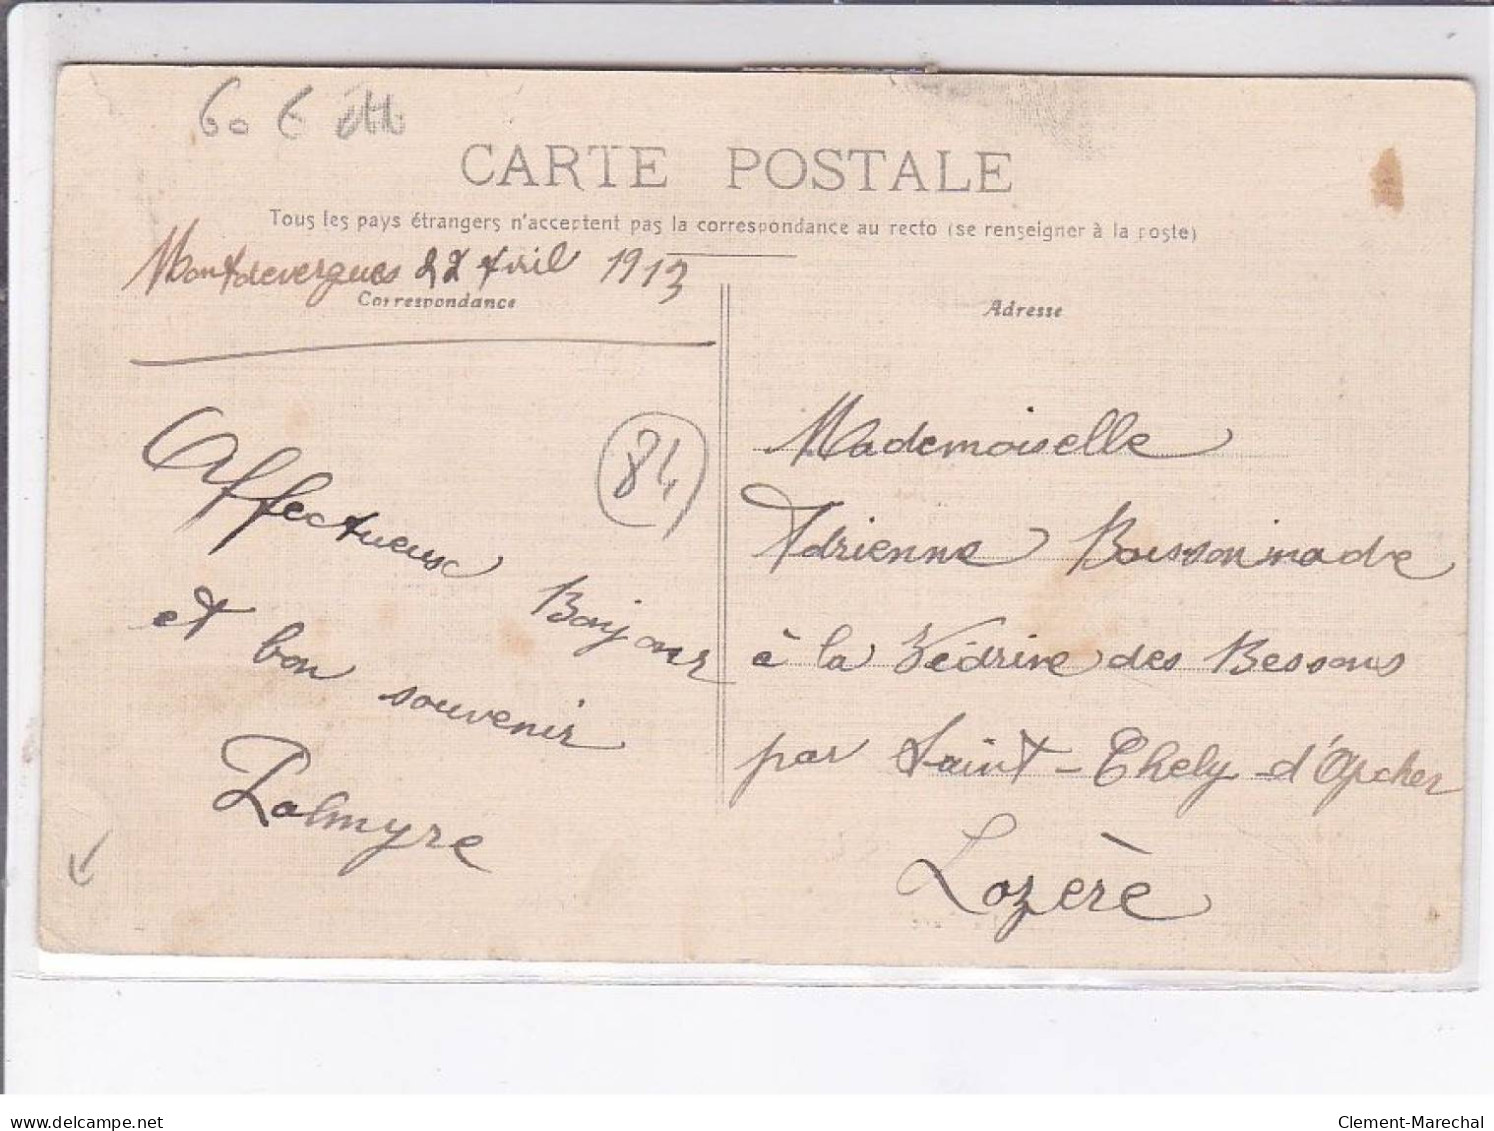 60 €
CARTE POSTALE
Tous les pays étrangers n'acceptent pas la correspondance au recto (se renseigner à la poste)
Montdevergues 22 Avril 1913
Correspondance
Adresse
84
Affectueux Bonjour
et bon souvenir
Palmyre
Mademoiselle
Adrienne Boissonnade
à la Védrine des Bessons
par Saint-Chely-d'Apcher
Lozère
delcampe.net
Clement-Marechal